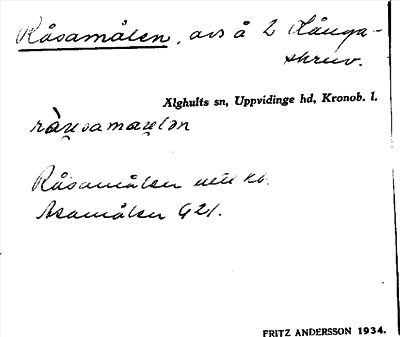 Råsamålen, avs å 2 Långa-
skruv.
Älghults sn, Uppvidinge hd, Kronob. l.
Råsamålen
Asamålen G 21.
FRITZ ANDERSSON 1934.